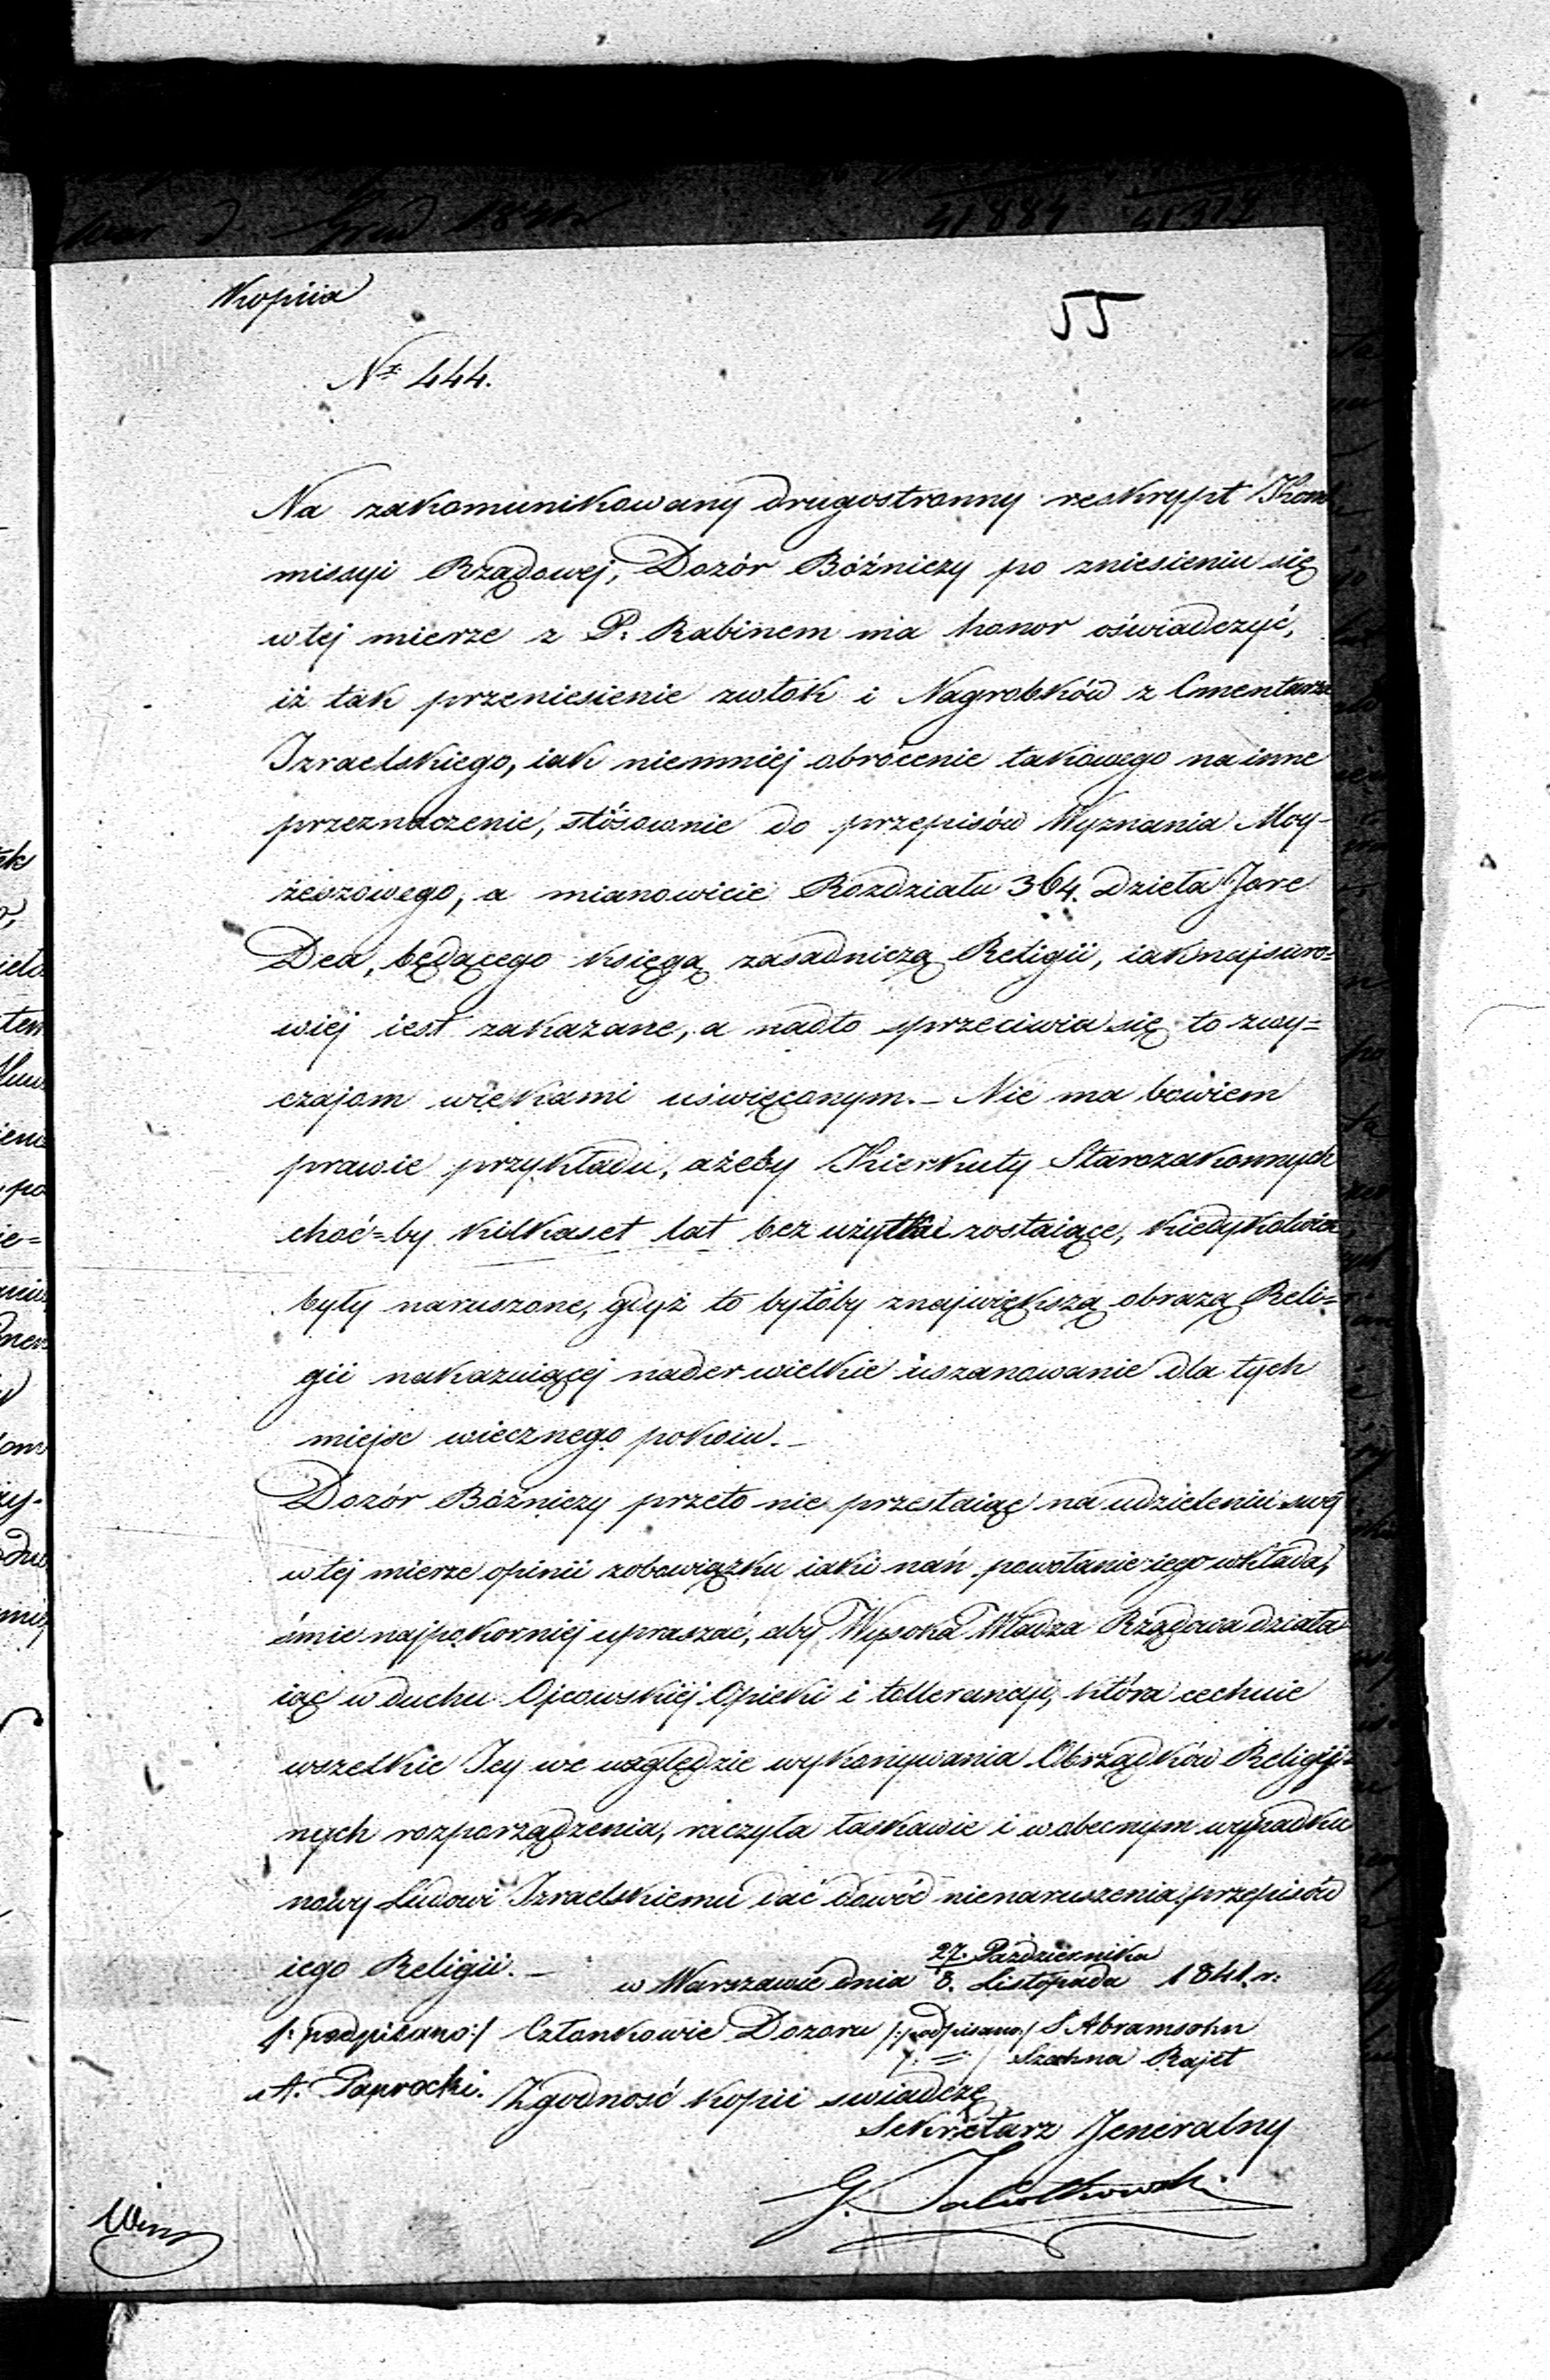 Kopiia
55
Nr 444.
Na zakomunikowany drugostronny reskrypt Kom
missyi Rządowej, Dozór Bóźniczy po zniesieniu się
w tej mierze z P. Rabinem ma honor oświadczyć,
iż tak przeniesienie zwłok i Nagrobków z Cmentarza
Izraelskiego, iak niemniej obrócenie takowego na inne
przeznaczenie, stósownie do przepisów Wyznania Moy-
żeszowego, a mianowicie Rozdziału 364. dzieła Jore
Dea, będącego księgą zasadniczą Religii, iaknajsuro=
wiej iest zakazane, a nadto sprzeciwia się to zwy=
czajom wiekami uświęconym. — Nie ma bowiem
prawie przykładu, ażeby Kierkuty Starozakonnych
choć=by kilkaset lat bez użytku zostaiące, kiedykolwiek
były naruszone, gdyż to byłoby największą obrazą Reli=
gii nakazuiącej nader wielkie uszanowanie dla tych
miejsc wiecznego pokoiu. —
Dozór Bóźniczy przeto nie przestaiąc na udzieleniu swej
w tej mierze opinii z obowiązku iaki nań powołanie iego wkłada,
śmie najpokorniej upraszać, aby Wysoka Władza Rządowa działa
iąc w duchu Ojcowskiej Opieki i tollerancji, która cechuie
wszelkie Jey we względzie wykonywania Obrządków Religij=
nych rozporządzenia, raczyła łaskawie i w obecnym wypadku
nowy Ludowi Izraelskiemu dać dowód nienaruszenia przepisów
iego Religii. — w Warszawie dnia 27. Października
8. Listopada 1841 r:
/: podpisano :/ Członkowie Dozoru /: podpisano :/ S Abramsohn
/: = / Szachna Rajet
A. Paprocki. Zgodność kopii swiadczę
Sekretarz Jeneralny
G.